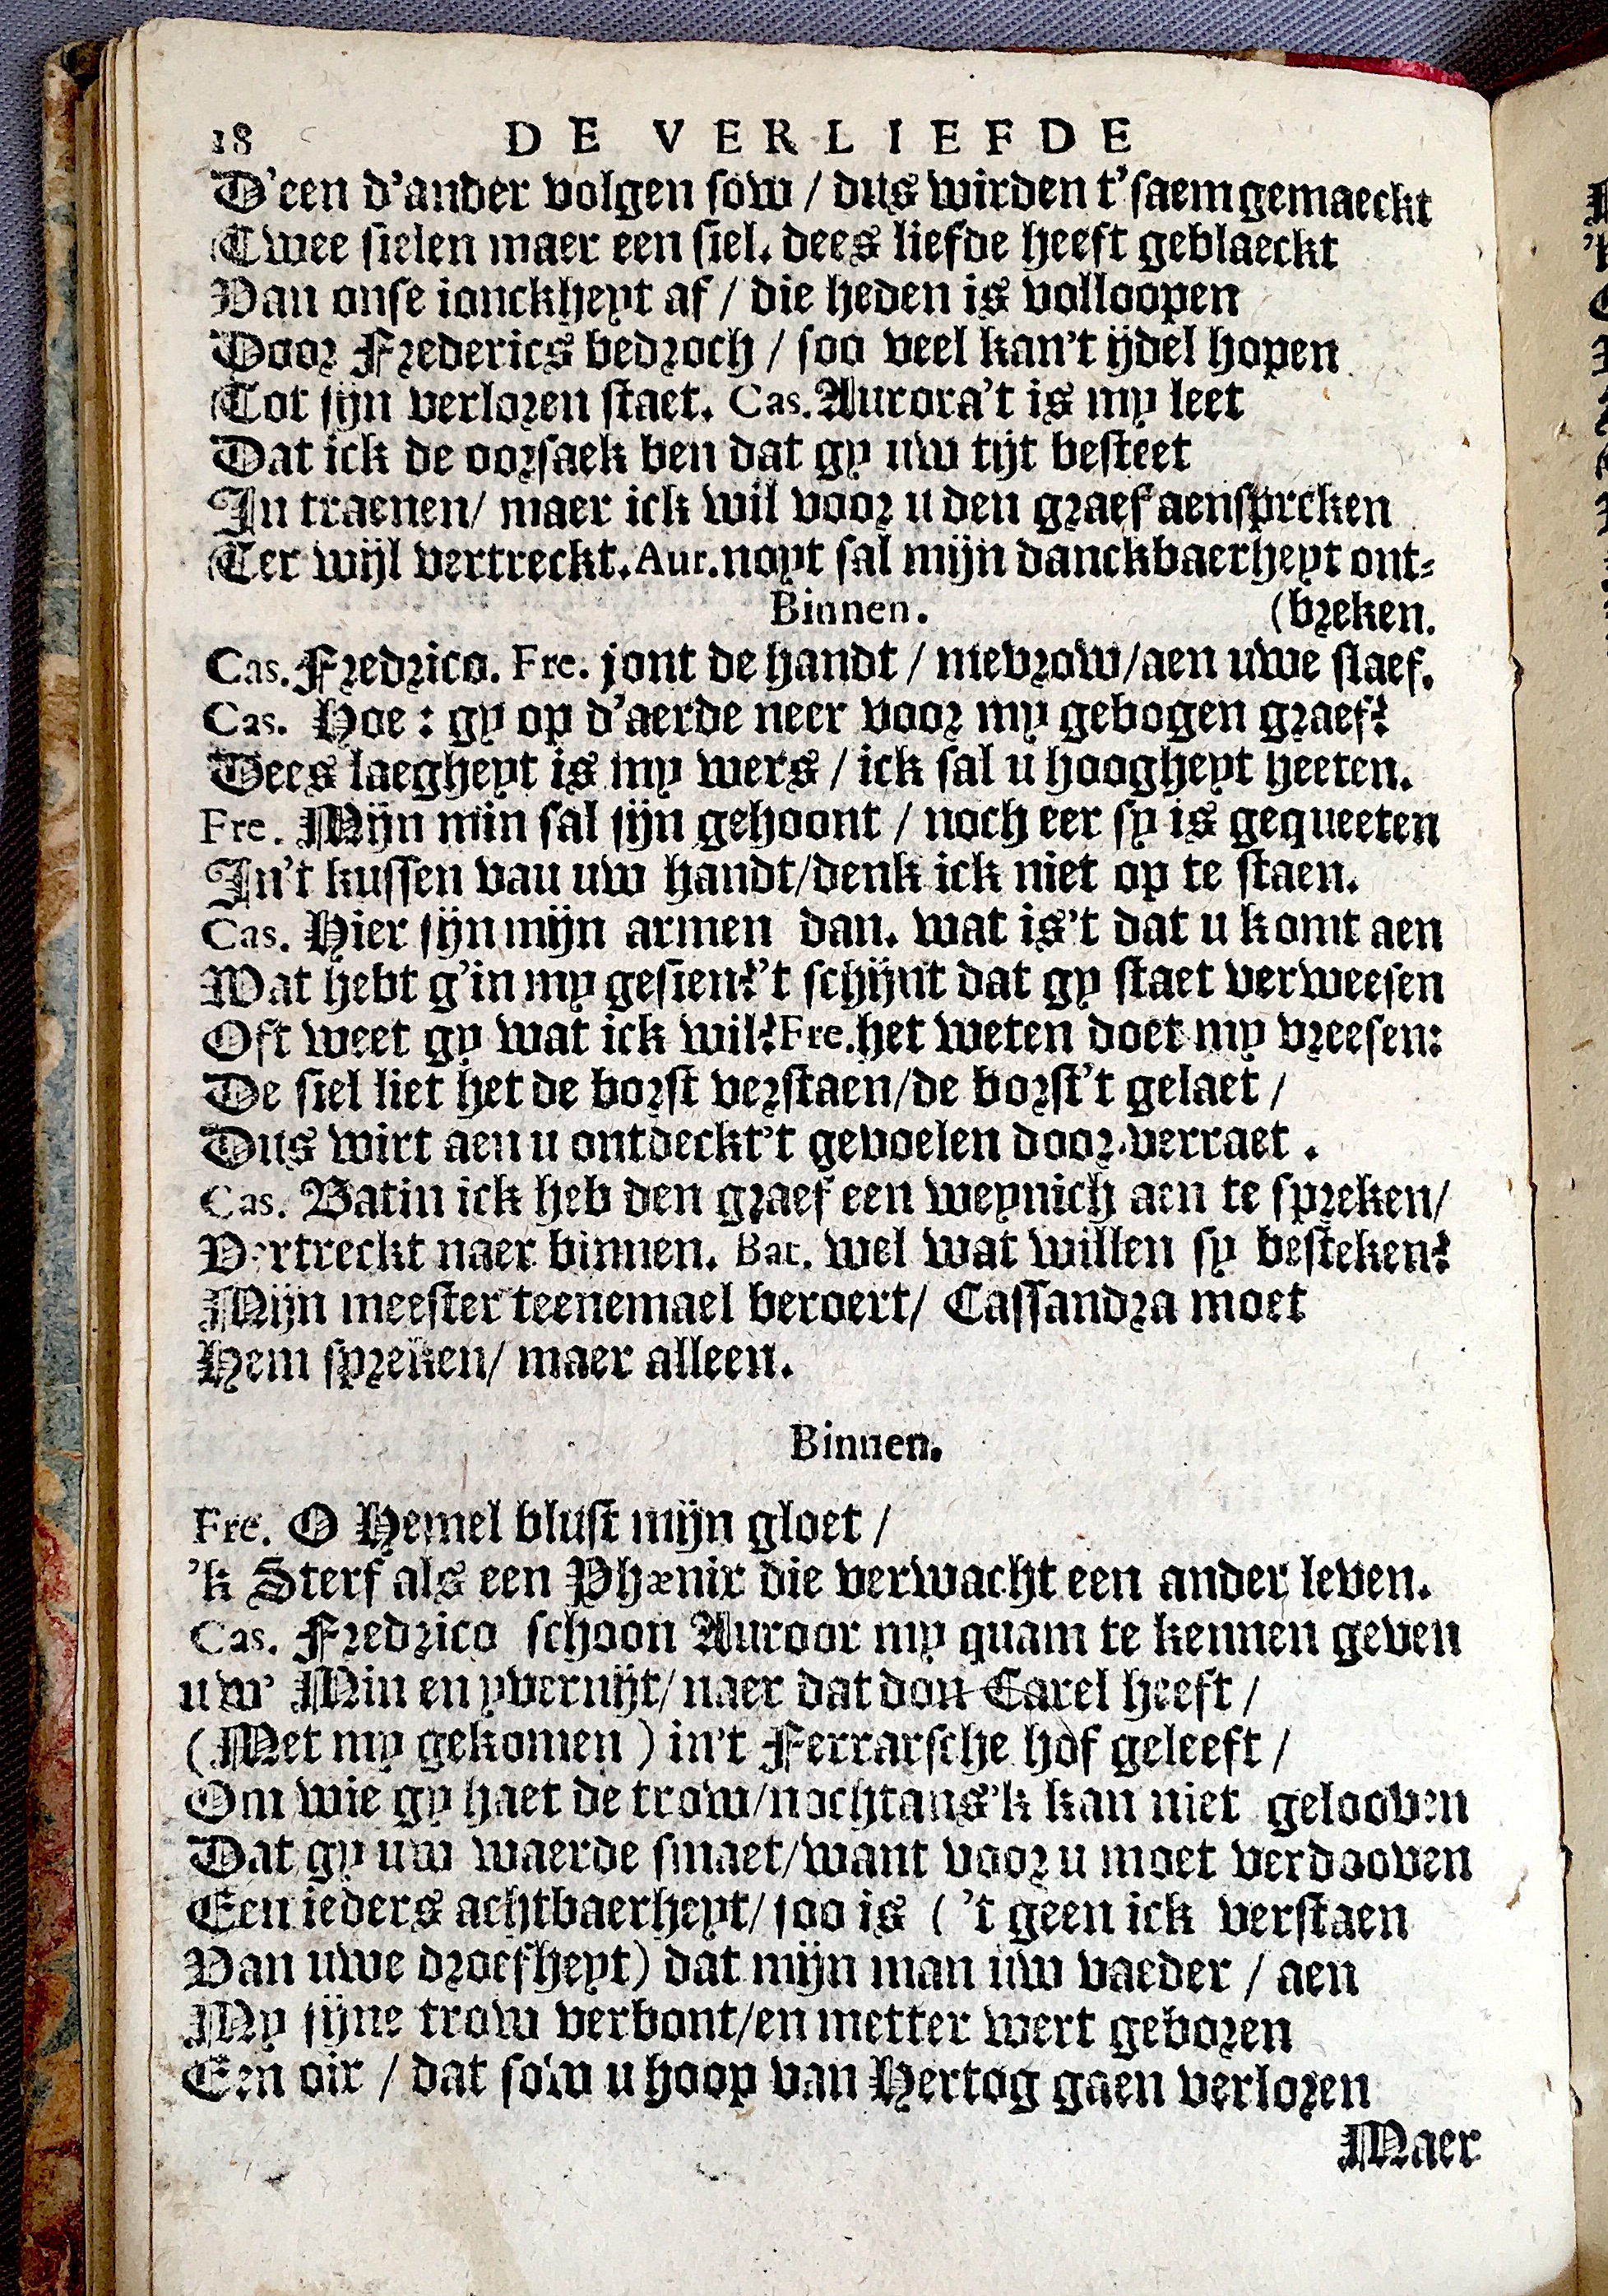 18 DE VERLIEFDE
D'een d'ander volgen sow / dus wirden t'saem gemaeckt
Twee sielen maer een siel. dees liefde heeft geblaeckt
Van onse ionckheyt af / die heden is volloopen
Door Frederics bedroch / soo veel kan't ijdel hopen
Tot sijn verloren staet. Cas. Aurora't is my leet
Dat ick de oorsaek ben dat gy uw tijt besteet
In traenen/ maer ick wil voor u den graef aensprcken
Ter wijl vertreckt. Aur. noyt sal mijn danckbaerheyt ont-
Binnen. (breken.
Cas. Fredrico. Fre. jont de handt / mevrow/aen uwe slaef.
Cas. Hoe : gy op d'aerde neer voor my gebogen graef?
Dees laegheyt is my wers / ick sal u hoogheyt heeten.
Fre. Mijn min sal sijn gehoont / noch eer sy is gequeeten
In't kussen vau uw handt/denk ick niet op te staen.
Cas. Hier sijn mijn armen dan. wat is't dat u komt aen
Wat hebt g'in my gesien?'t schijnt dat gy staet verweesen
Oft weet gy wat ick wil? Fre. het weten doet my vreesen:
De siel liet het de borst verstaen/de borst't gelaet /
Dus wirt aen u ontdeckt't gevoelen door verraet .
Cas. Batin ick heb den graef een weynich aen te spreken/
Vertreckt naer binnen. Bat. wel wat willen sy besteken?
Mijn meester teenemael beroert/ Cassandra moet
Hem spreken/ maer alleen.
Binnen.
Fre. O Hemel blust mijn gloet /
'k Sterf als een Phænix die verwacht een ander leven.
Cas. Fredrico schoon Auroor my quam te kennen geven
uw' Min en yvernijt/ naer dat don Carel heeft /
(Met my gekomen ) in't Ferrarsche hof geleeft /
Om wie gy haet de trow/nochtans'k kan niet gelooven
Dat gy uw waerde smaet/want voor u moet verdooven
Een ieders achtbaerheyt/ soo is ( 't geen ick verstaen
Van uwe droefheyt) dat mijn man uw vaeder / aen
My sijne trow verbont/en metter wert geboren
Een oir / dat sow u hoop van Hertog gaen verloren
Maer